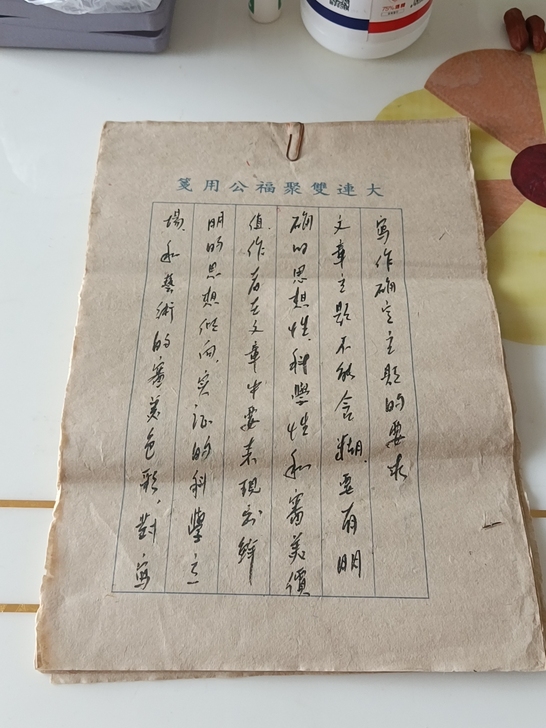 大連雙聚福公用箋
寫作确定主题的要求
文章主题不能含糊.要有明
确的思想性.科學性和審美價
值.作者在文章中要表現出鲜
明的思想倾向.实证的科學立
場.和藝術的審美色彩.對寫